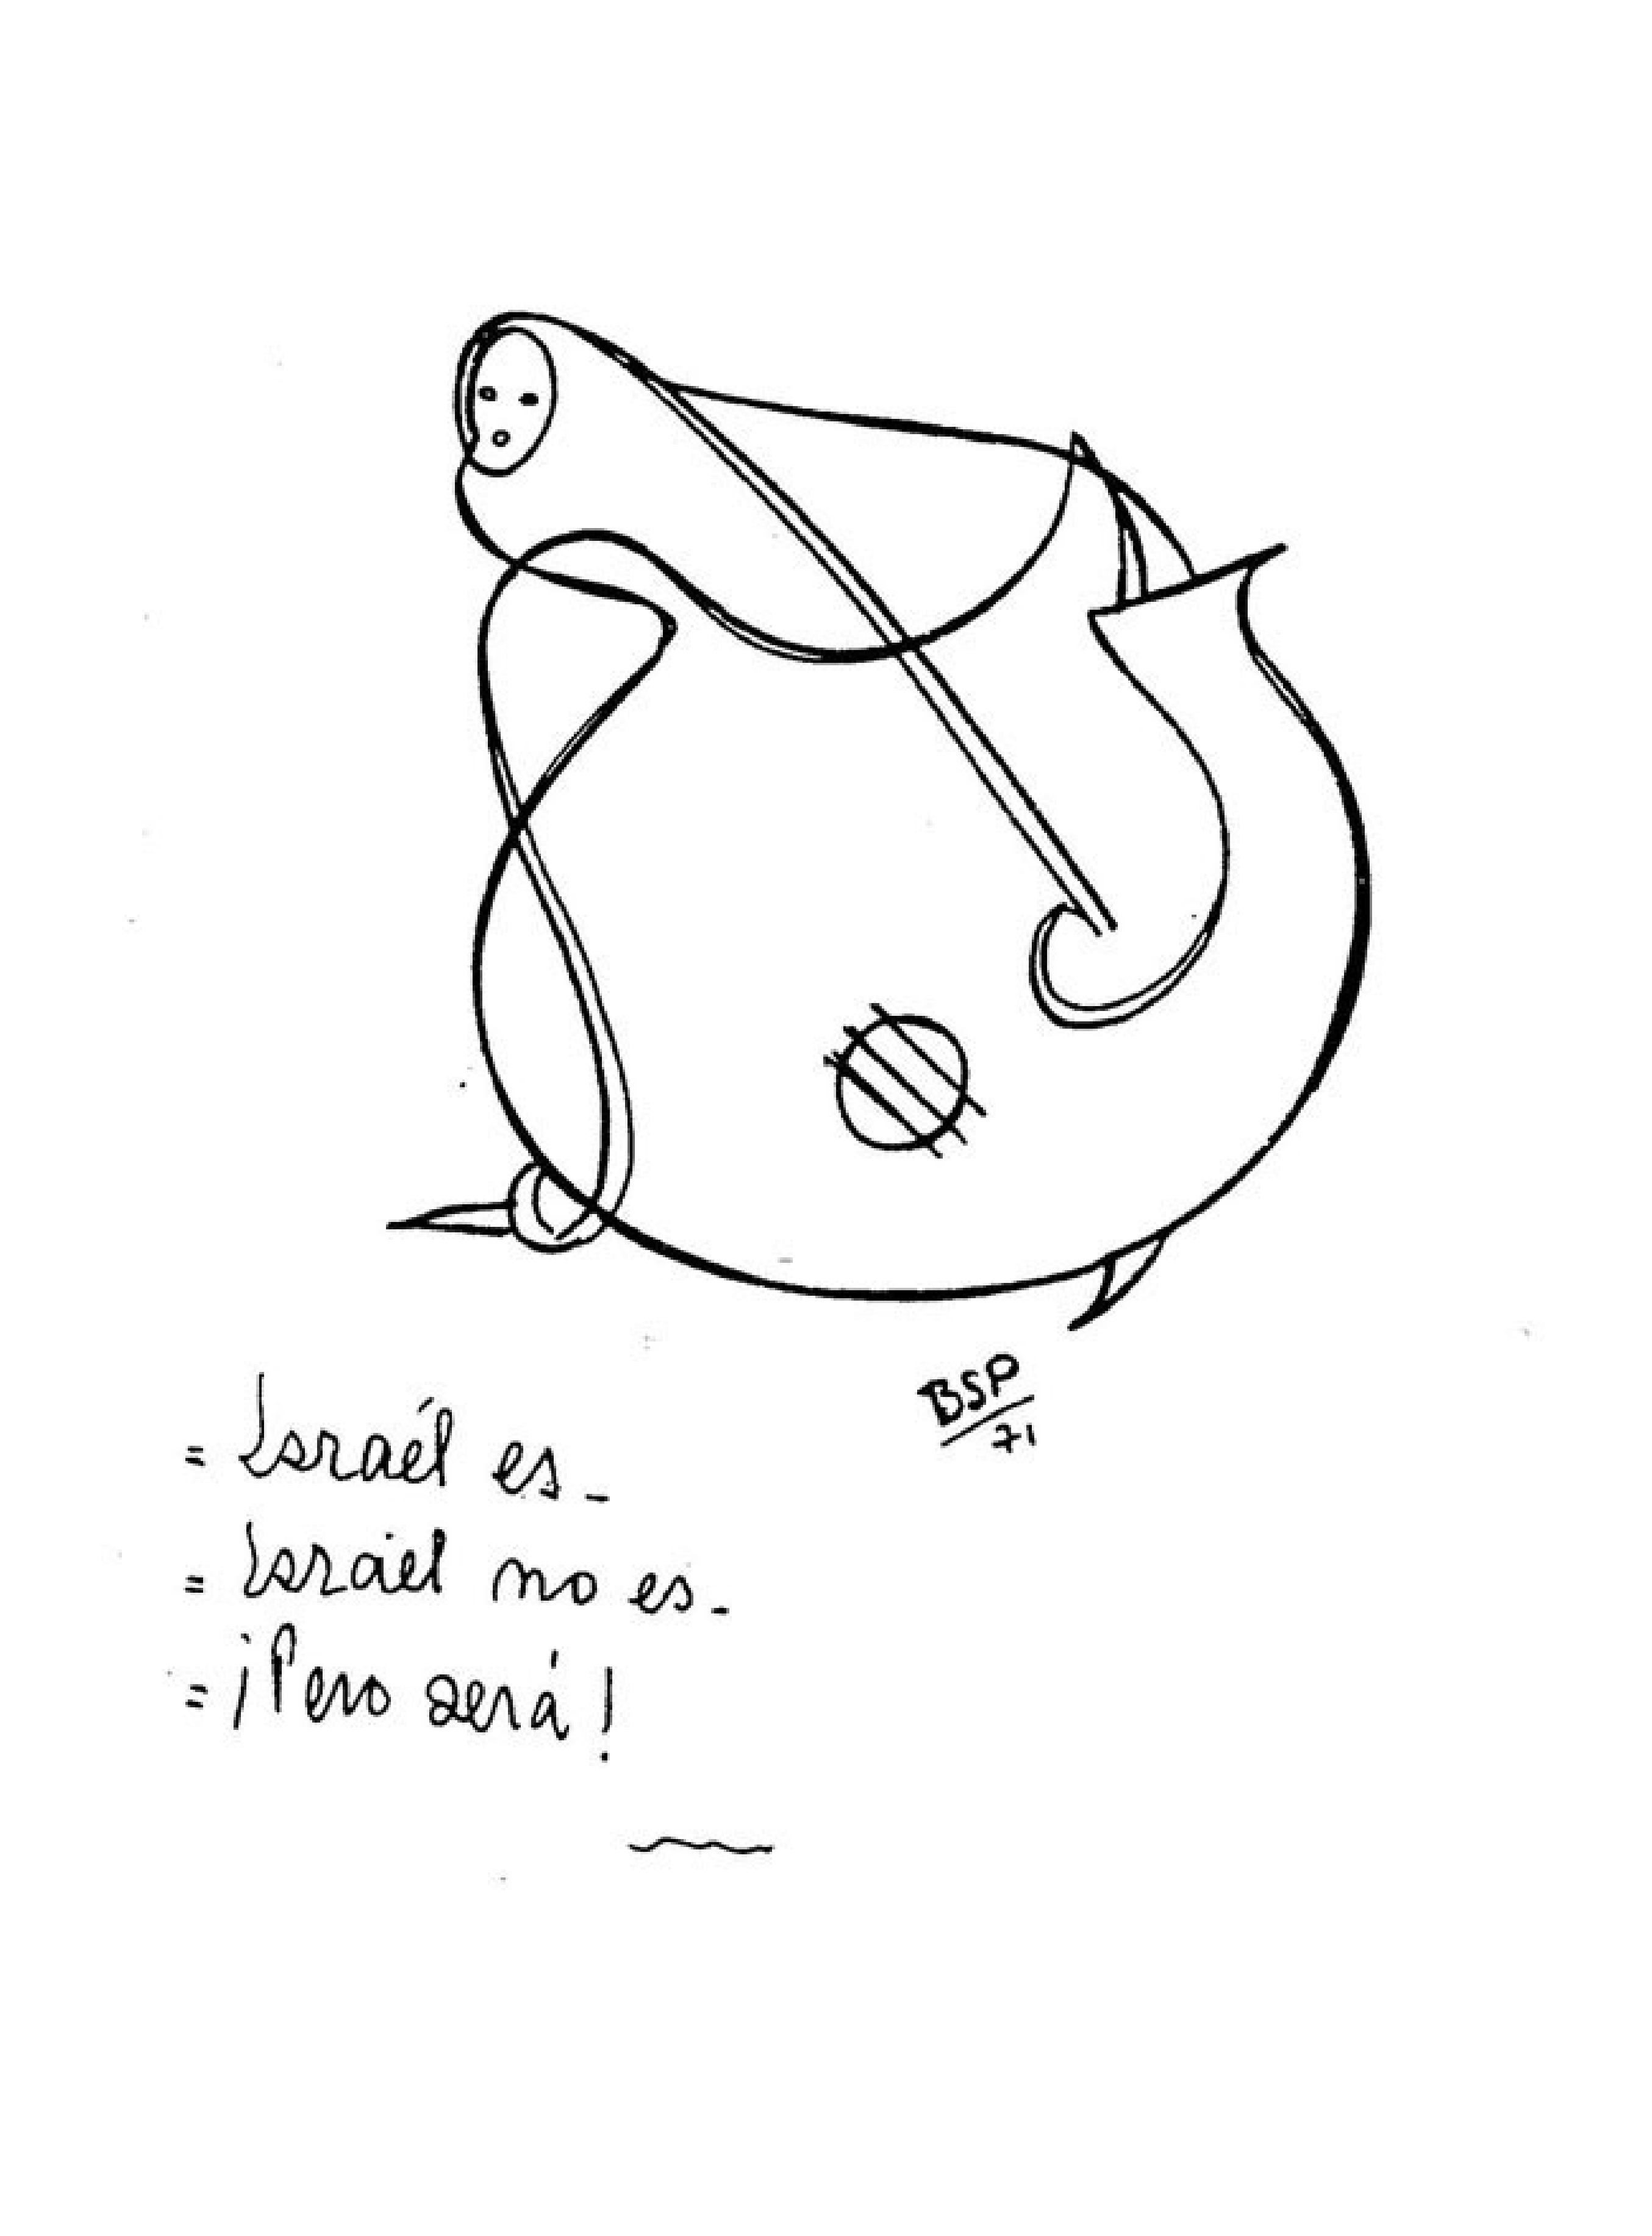 BSP
71
= Israél es_
= Israel no es_
= ¡Pero será!